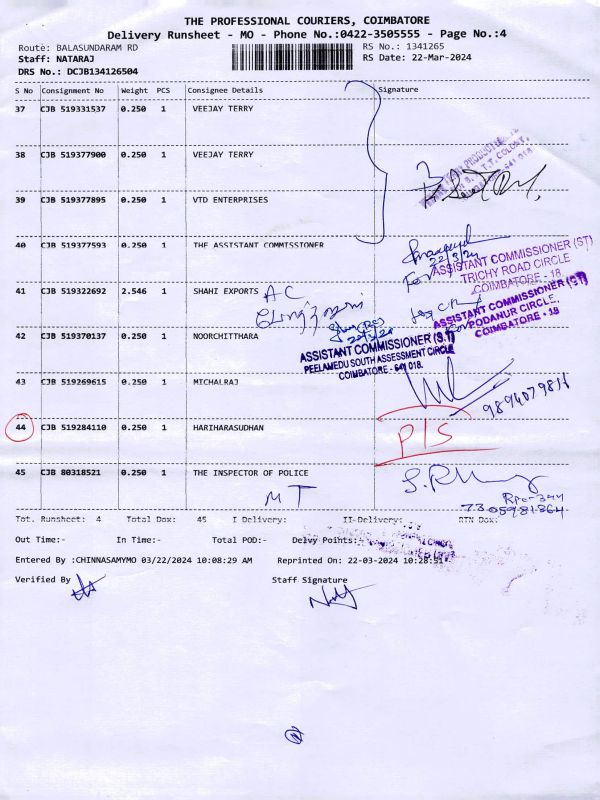 THE PROFESSIONAL COURIERS, COIMBATORE
Delivery Runsheet - MO - Phone No.:0422-3505555 - Page No.:4
Route: BALASUNDARAM RD
RS No.: 1341265
Staff: NATARAJ
RS Date: 22-Mar-2024
DRS No.: DCJB134126504
S No Consignment No Weight PCS Consignee Details Signature
37 CJB 519331537 0.250 1 VEEJAY TERRY
38 CJB 519377900 0.250 1 VEEJAY TERRY
39 CJB 519377895 0.250 1 VTD ENTERPRISES
40 CJB 519377593 0.250 1 THE ASSISTANT COMMISSIONER
ASSISTANT COMMISSIONER (ST)
TRICHY ROAD CIRCLE
COIMBATORE - 18.
41 CJB 519322692 2.546 1 SHAHI EXPORTS
A C
ASSISTANT COMMISSIONER (ST)
PODANUR CIRCLE,
COIMBATORE - 18
42 CJB 519370137 0.250 1 NOORCHITTHARA
ASSISTANT COMMISSIONER (S.T)
PEELAMEDU SOUTH ASSESSMENT CIRCLE
COIMBATORE - 641 018.
43 CJB 519269615 1 0.250 MICHALRAJ
9894079811
44 CJB 519284110 0.250 1 HARIHARASUDHAN
P/S
45 CJB 80318521 0.250 1 THE INSPECTOR OF POLICE
M T
7305981864
Tot. Runsheet: 4 Total Dox: 45 I Delivery: II-Delivery: RTN Dox:
Out Time:- In Time:- Total POD:- Delvy Points:-
Entered By :CHINNASAMYMO 03/22/2024 10:08:29 AM Reprinted On: 22-03-2024 10:28:51
Verified By
Staff Signature